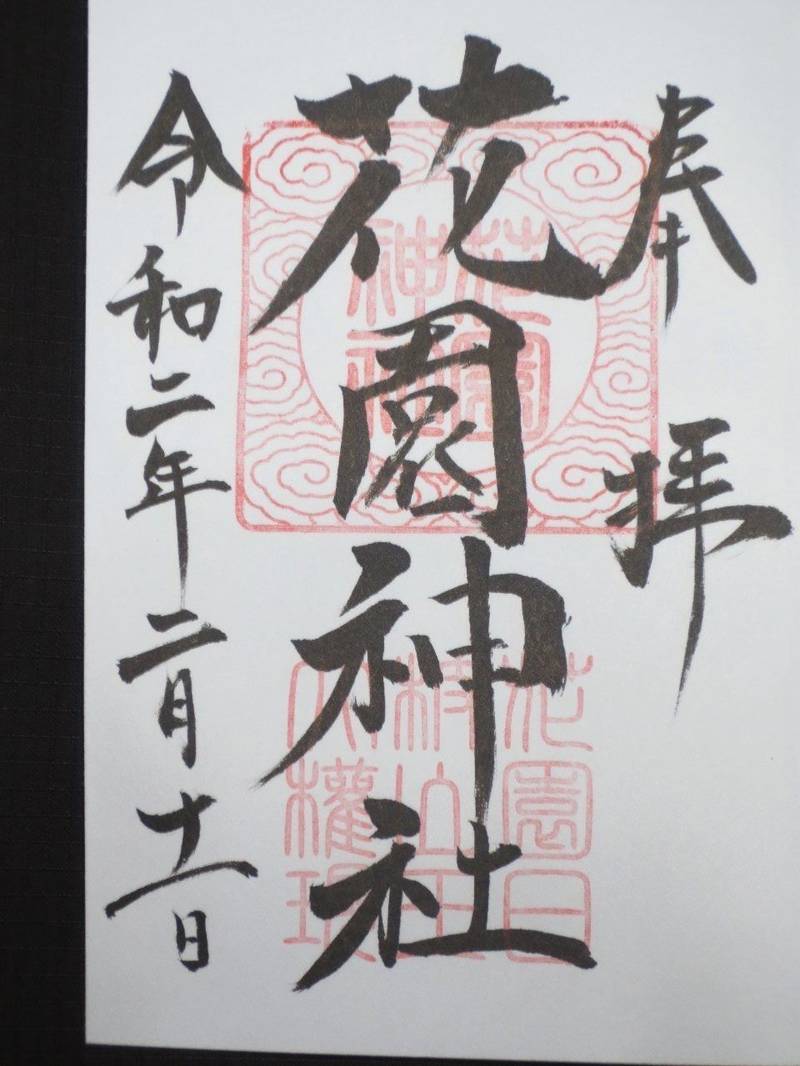 奉拝
花園神社
令和二年二月十一日
花園
神社
花園日
枝山王
大權現